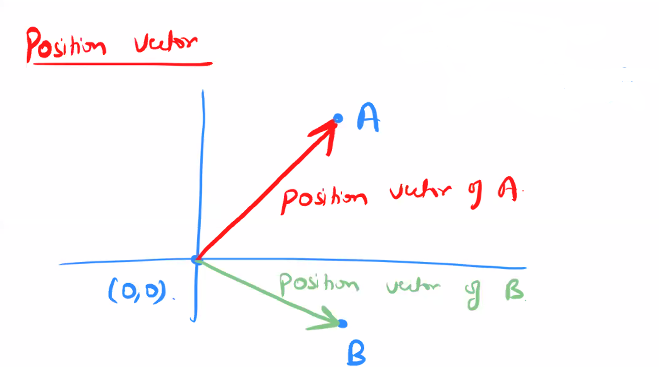 Position vector
A
Position vector of A.
(0,0).
Position vector of B
B